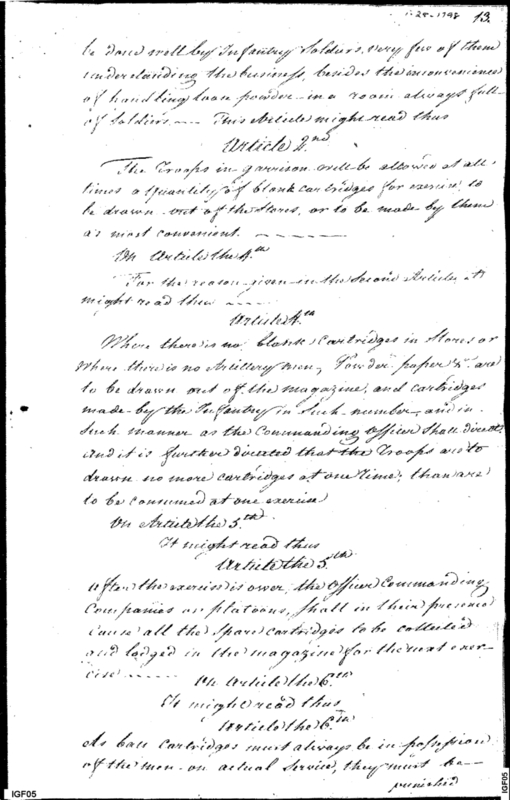 1-25-1798 13.
be done well by Infantry Soldiers, very few of them
understanding the business, besides the inconvenience
of handling loose powder in a room always full
of Soldiers — This Article might read thus
Article 2nd
The Troops in garrison will be allowed at all
times a quantity of blank cartridges for exercise, to
be drawn out of the Stores, or to be made by them
as most convenient
On Article the 4th
For the reason given in the Second Article, it
might read thus
Article 4th
Where there is no blank cartridges in Stores or
where there is no Artillery men, Powder paper &c. are
to be drawn out of the magazine, and cartridges
made by the Infantry in such number, and in
such manner as the Commanding Officer Shall direct,
and it is further directed that the Troops are to
drawn no more cartridges at one time, than are
to be consumed at one exercise
On Article the 5th
It might read thus
Article the 5th
After the exercise is over, the Officer Commanding
Companies or platoons, shall in their presence
cause all the spare cartridges to be collected
and lodged in the magazine for the next exer-
cise — On Article the 6th
It might read thus
Article the 6th
As ball cartridges must always be in possession
of the men on actual Service, they must be
punished
IGF05
IGF05